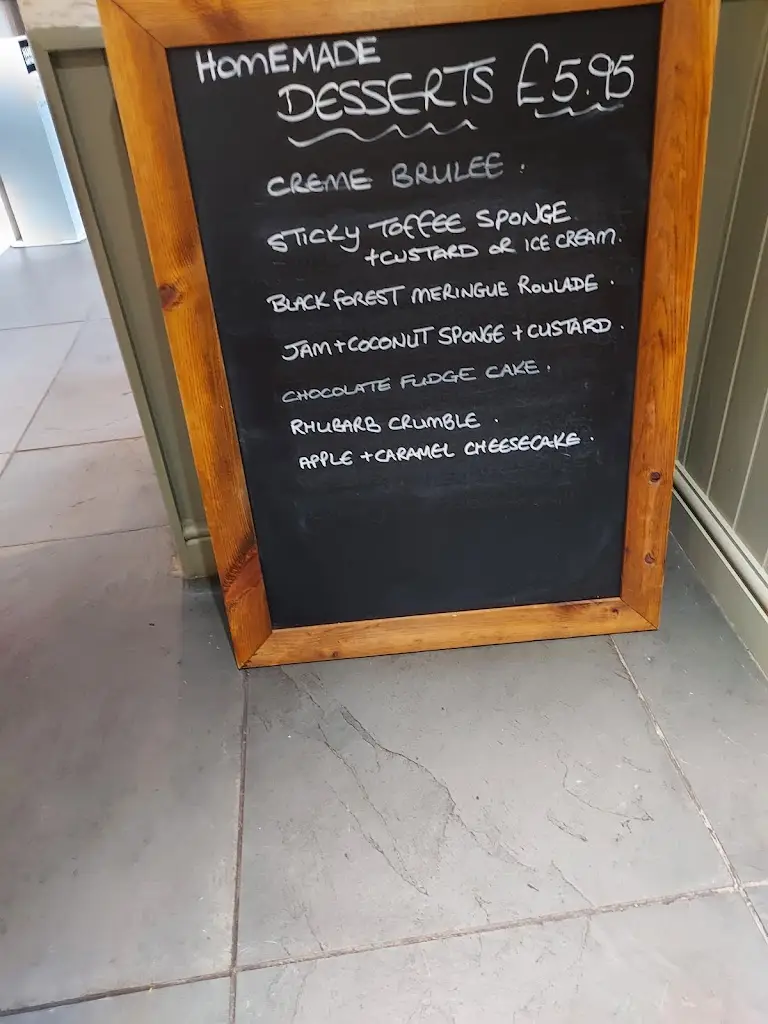 HOMEMADE
DESSERTS £5.95
CREME BRULEE.
STICKY TOFFEE SPONGE
+CUSTARD OR ICE CREAM.
BLACK FOREST MERINGUE ROULADE.
JAM+COCONUT SPONGE + CUSTARD.
CHOCOLATE FUDGE CAKE.
RHUBARB CRUMBLE.
APPLE +CARAMEL CHEESECAKE.